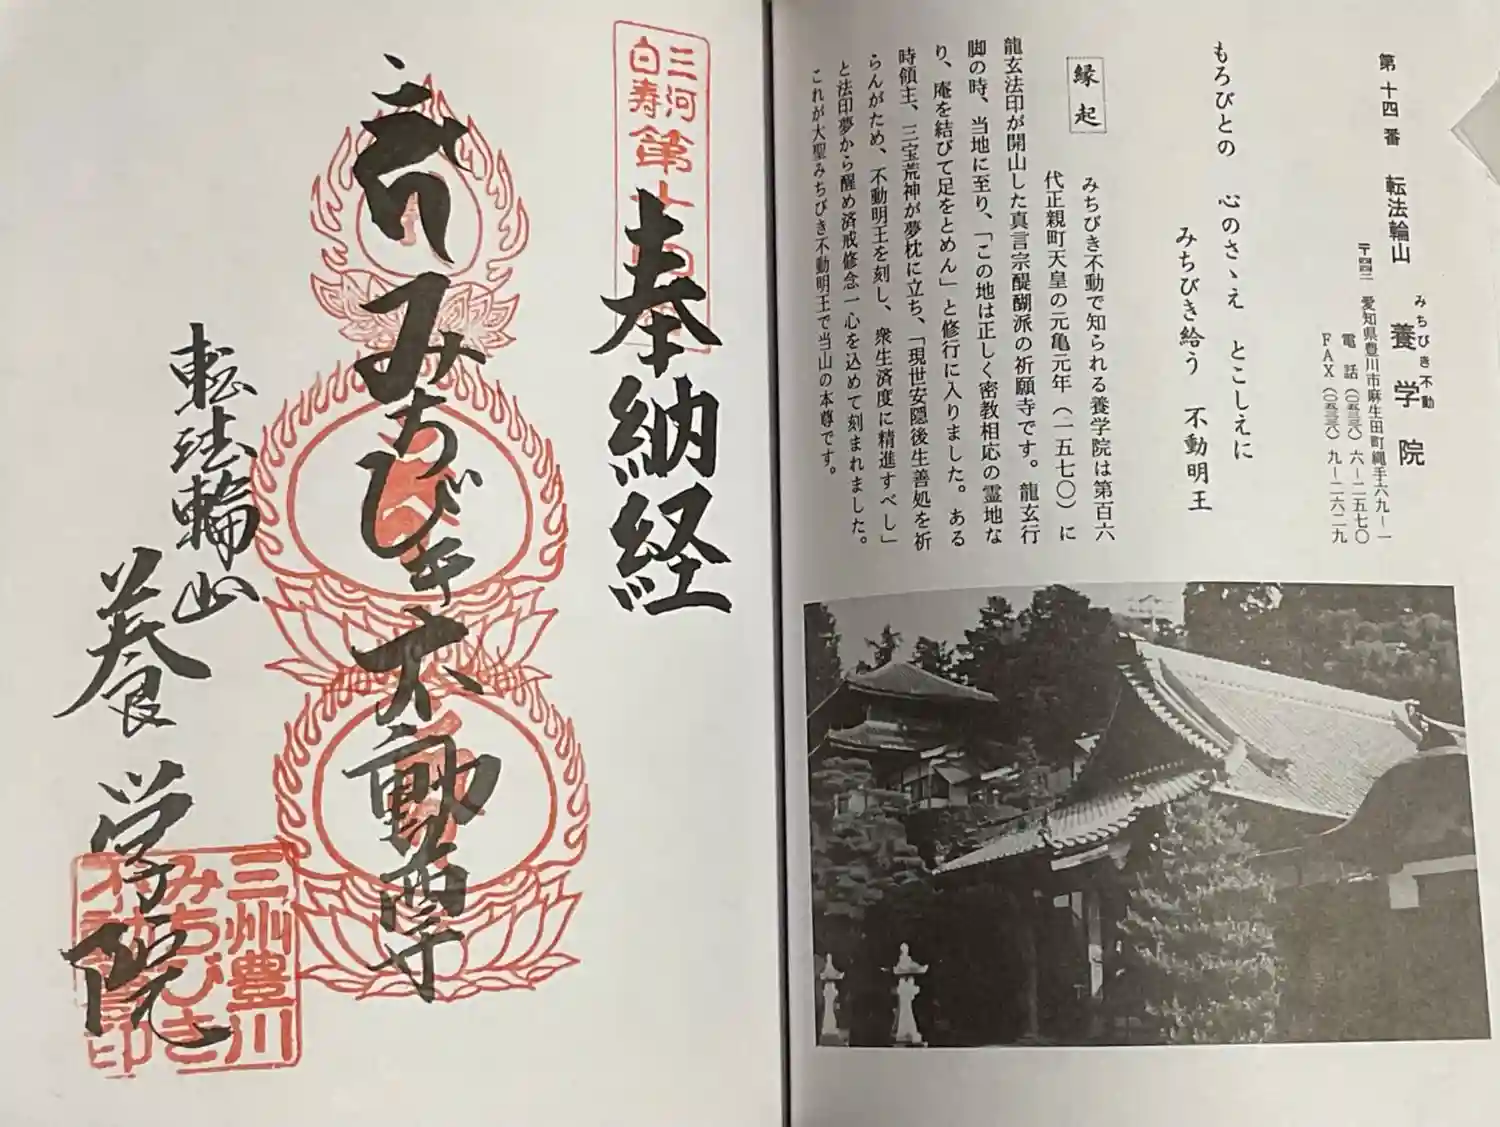 第十四番 転法輪山 養学院
みちびき不動
〒四四二 愛知県豊川市麻生田町縄手六九ー一
電話(〇五三三八)六ー二五七〇
FAX(〇五三三八)九ー二六二九
もろびとの 心のさゝえ とこしえに
みちびき給う 不動明王
縁起
みちびき不動で知られる養学院は第百六
代正親町天皇の元亀元年(一五七〇)に
龍玄法印が開山した真言宗醍醐派の祈願寺です。龍玄行
脚の時、当地に至り、「この地は正しく密教相応の霊地な
り、庵を結びて足をとめん」と修行に入りました。ある
時領主、三宝荒神が夢枕に立ち、「現世安隠後生善処を祈
らんがため、不動明王を刻し、衆生済度に精進すべし」
と法印夢から醒め済戒修念一心を込めて刻まれました。
これが大聖みちびき不動明王で当山の本尊です。
三河
白寿
第十四
奉納経
みちびき不動尊
転法輪山
養学院
三州豊川
みちびき
不動尊印